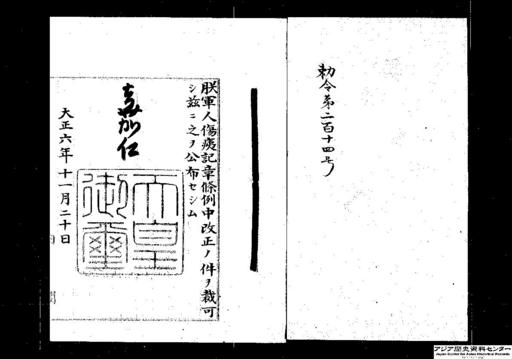 勅令第二百十四号
朕軍人傷痍記章條例中改正ノ件ヲ裁可
シ茲ニ之ヲ公布セシム
嘉仁
天皇
御璽
大正六年十一月二十日
アジア歴史資料センター
Japan Center for Asian Historical Records